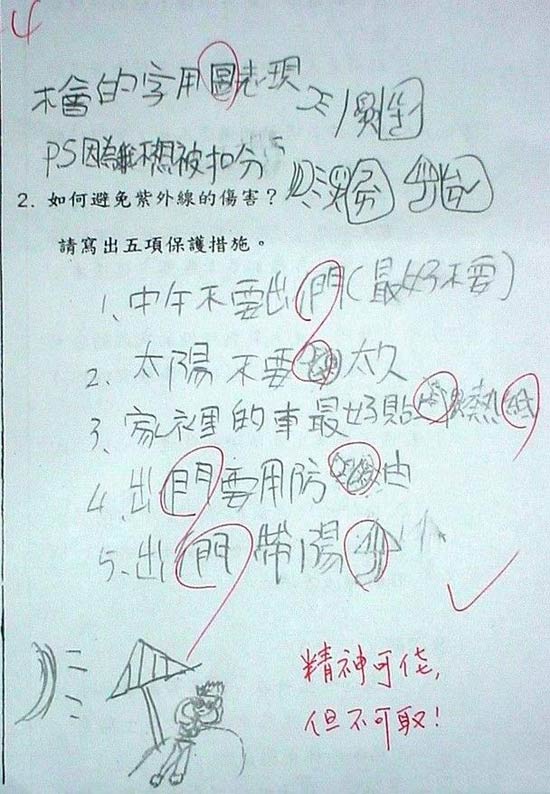 4
不會的字用圖表現
PS因為不想被扣分
2. 如何避免紫外線的傷害？
請寫出五項保護措施。
1、中午不要出門(最好不要)
2、太陽不要太久
3、家裡的車最好貼熱紙
4、出門要用防油
5、出門帶陽
精神可佳，
但不可取！